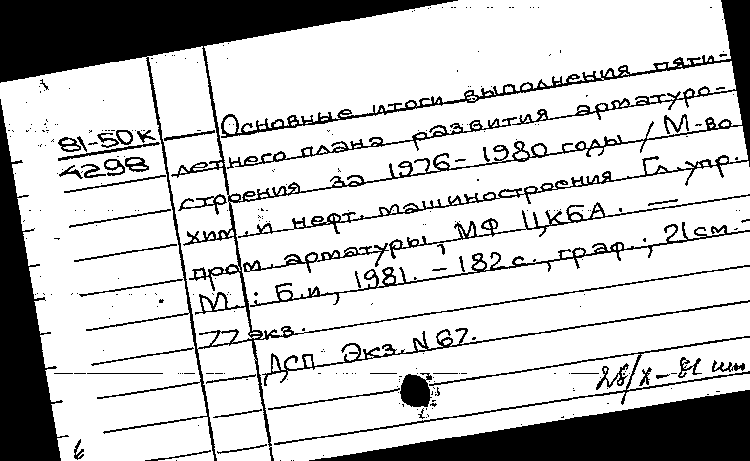 81-50к
4298
Основные итоги выполнения пяти=
летнего плана развития арматуро-
строения за 1976-1980 годы / М-во
хим. и нефт. машиностроения. Гл. упр.
пром. арматуры, МФ ЦКБА. —
М.: Б.и, 1981. - 182 с., граф.; 21 см. -
77 экз.
ДСП Экз. N 67.
28/X - 81